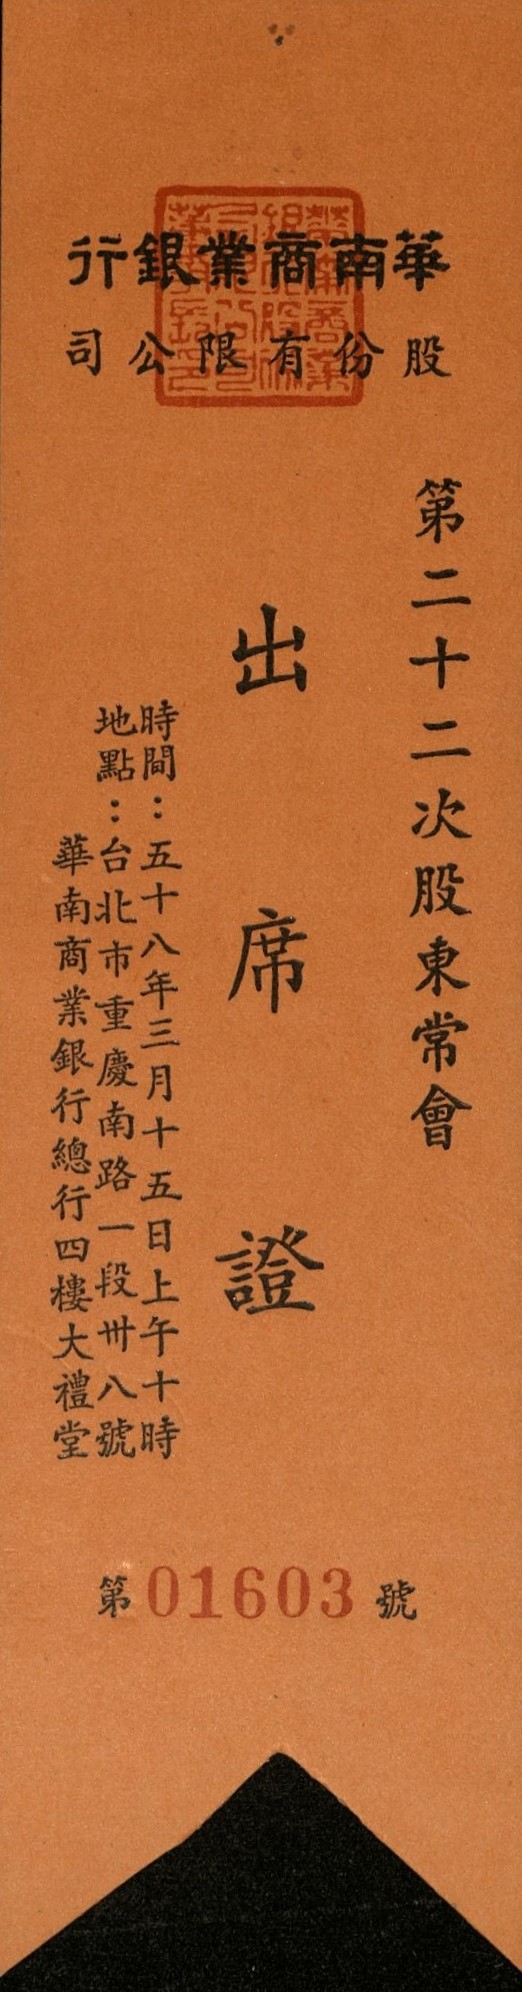 華南商業銀行
股份有限公司
第二十二次股東常會
出席證
時間：五十八年三月十五日上午十時
地點：台北市重慶南路一段卅八號
華南商業銀行總行四樓大禮堂
第01603號